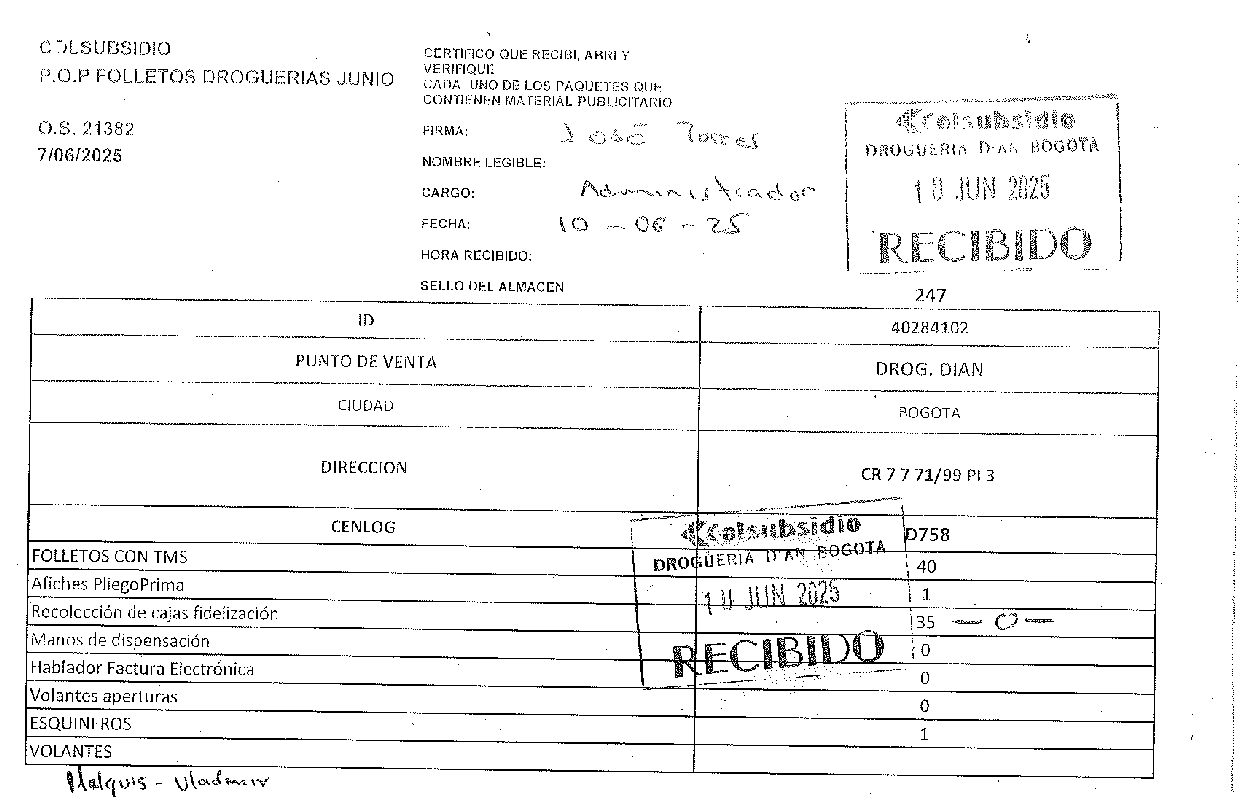 COLSUBSIDIO
P.O.P FOLLETOS DROGUERIAS JUNIO
O.S. 21382
7/06/2025
CERTIFICO QUE RECIBI, ABRI Y
VERIFIQUE
CADA UNO DE LOS PAQUETES QUE
CONTIENEN MATERIAL PUBLICITARIO
FIRMA: José Torres
NOMBRE LEGIBLE:
CARGO: Administrador
FECHA: 10 - 06 - 25
HORA RECIBIDO:
SELLO DEL ALMACEN
Colsubsidio
DROGUERIA DIAN BOGOTA
10 JUN 2025
RECIBIDO
247
ID 40284102
PUNTO DE VENTA DROG. DIAN
CIUDAD BOGOTA
DIRECCION CR 7 7 71/99 PI 3
CENLOG D758
FOLLETOS CON TMS 40
Afiches PliegoPrima 1
Recolección de cajas fidelización 35 — 0 —
Manos de dispensación 0
Hablador Factura Electrónica 0
Volantes aperturas 0
ESQUINEROS 1
VOLANTES
Colsubsidio
DROGUERIA DIAN BOGOTA
10 JUN 2025
RECIBIDO
Malquis - Vladimir